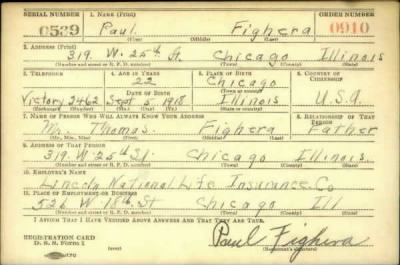 SERIAL NUMBER 1. NAME (Print) ORDER NUMBER
0539 Paul Fighera 0910
(First) (Middle) (Last)
2. ADDRESS (Print)
319 W. 25th St. Chicago Illinois
(Number and street or R. F. D. number) (Town) (County) (State)
3. TELEPHONE 4. AGE IN YEARS 5. PLACE OF BIRTH 6. COUNTRY OF CITIZENSHIP
22 Chicago
DATE OF BIRTH (Town or county)
Victory 2462 Sept 5, 1918 Illinois U.S.A.
(Exchange) (Number) (Mo.) (Day) (Yr.) (State or country)
7. NAME OF PERSON WHO WILL ALWAYS KNOW YOUR ADDRESS 8. RELATIONSHIP OF THAT PERSON
Mr. Thomas Fighera Father
(Mr., Mrs., Miss) (First) (Middle) (Last)
9. ADDRESS OF THAT PERSON
319 W. 25th St. Chicago Illinois
(Number and street or R. F. D. number) (Town) (County) (State)
10. EMPLOYER'S NAME
Lincoln National Life Insurance Co
11. PLACE OF EMPLOYMENT OR BUSINESS
526 W. 18th St Chicago Ill
(Number and street or R. F. D. number) (Town) (County) (State)
I AFFIRM THAT I HAVE VERIFIED ABOVE ANSWERS AND THAT THEY ARE TRUE.
REGISTRATION CARD
D. S. S. Form 1 Paul Fighera
(Registrant's signature)